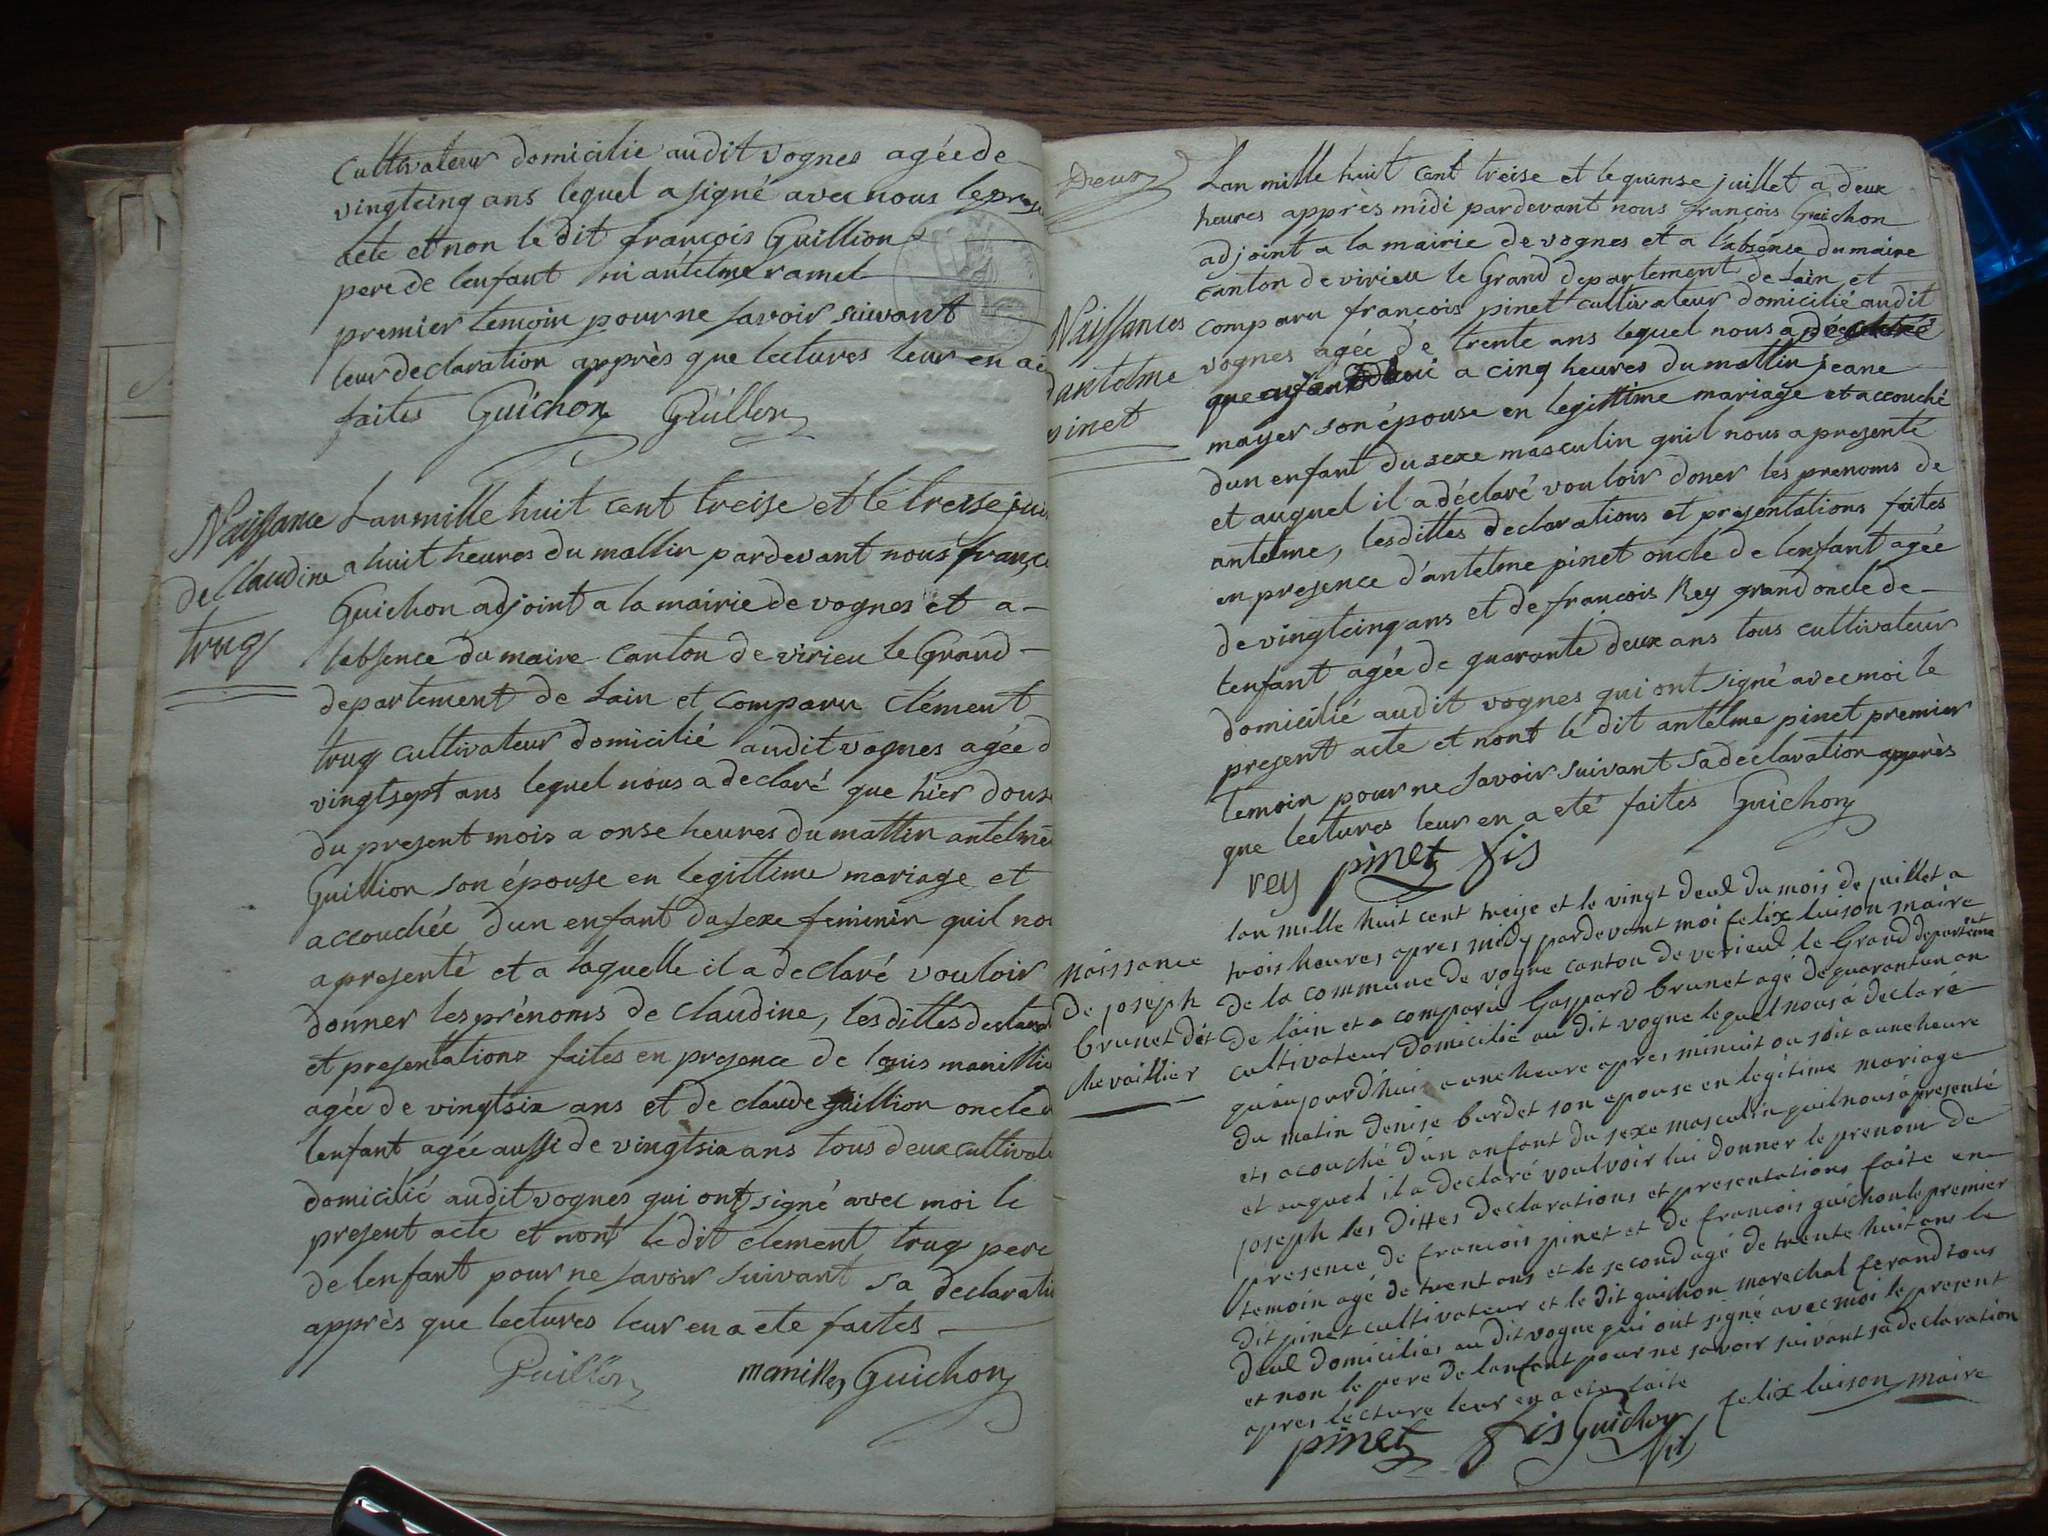 cultivateur domicilie audit vognes agée de
vingtcinq ans lequel a signé avec nous le
acte et non le dit françois Guillion
pere de lenfant ni antelme ramel
premier temoin pour ne savoir suivant
leur declaration apprès que lectures leur en a
faites Guichon Guillon
Naissance
de Claudine
truq
Lan mille huit cent treise et le treise
a huit heures du mattin pardevant nous
Guichon adjoint a la mairie de vognes et a
labsence du maire canton de virieu le Grand
departement de Lain et comparu clément
truq cultivateur domicilié audit vognes agée d
vingtsept ans lequel nous a declaré que hier
du present mois a onse heures du mattin antelme
Guillion son épouse en legittime mariage et
accouchée dun enfant du sexe feminin quil
a presenté et a laquelle il a declaré vouloir
donner les prénoms de claudine, les dittes
et presentations faites en presence de louis
agée de vingtsix ans et de claude guillion oncle d
lenfant agée aussi de vingtsix ans tous deux
domicilié audit vognes qui ont signé avec moi le
present acte et nont le dit clement truq pere
de lenfant pour ne savoir suivant sa
apprès que lectures leur en a eté faites
Guillon Guichon
Naissances
dantelme
pinet
Lan mille huit cent treise et le quinse juillet a deux
heures apprès midi pardevant nous françois Guichon
adjoint a la mairie de vognes et a labsense du maire
canton de virieu le Grand departement de Lain et
comparu francois pinet cultivateur domicilié audit
vognes agée de trente ans lequel nous a déclaré
que aujourdhui a cinq heures du mattin jeane
mayer son épouse en legittime mariage et accouché
dun enfant du sexe masculin quil nous a presenté
et auquel il a déclaré vouloir doner les prenoms de
antelme, les dittes declarations et presentations faites
en presence d'antelme pinet oncle de lenfant agée
de vingtcinq ans et de francois Rey grand oncle de
lenfant agée de quarante deux ans tous cultivateur
domicilié audit vognes qui ont signé avec moi le
present acte et nont le dit antelme pinet premier
temoin pour ne savoir suivant sa declaration apprès
que lectures leur en a eté faites Guichon
rey pinet fis
naissance
de joseph
brunet dit
chevaillier
lan mille huit cent treise et le vingt deux du mois de juillet a
trois heures apres midy pardevant moi felix luison maire
de la commune de vogne canton de verieux le Grand departement
de lain et a comparu Gaspard brunet agé de quarantun an
cultivateur domicilié au dit vogne lequel nous a declaré
qu'aujourd'hui a une heure apres minuit ou soit a une heure
du matin denise bardet son epouse en legitime mariage
ets acouché d'un anfant du sexe masculin quil nous a presenté
et auquel il a declaré voulvoir lui donner le prenom de
joseph les dittes declarations et presentations faite en
presence de francois pinet et de francois guichon le premier
temoin agé de trent ans et le second agé de trente huit ans le
dit pinet cultivateur et le dit guichon marechal ferand tous
deux domiciliés au dit vogne qui ont signé avec moi le present
et non le pere de lanfant pour ne savoir suivant sa declaration
apres lecture leur en a eté faite
pinet fis Guichon felix luison maire